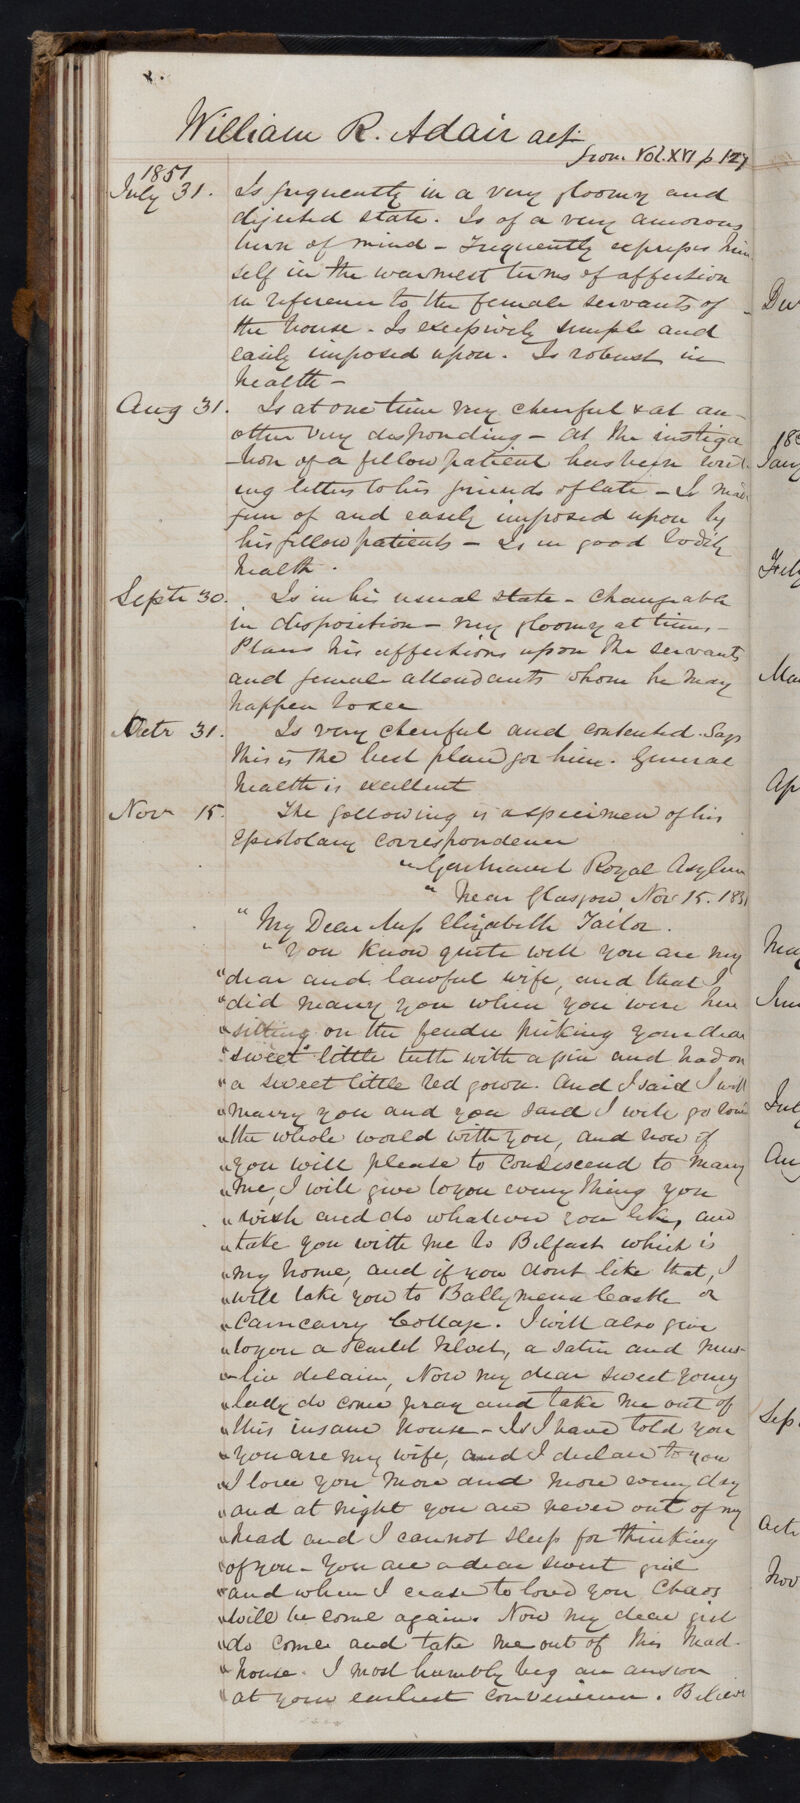 William R. Adair aet
from Vol. XVI p 127
1851
July 31. Is frequently in a very gloomy and
dejected state. Is of a very amorous
turn of mind – Frequently expresses him
self in the warmest terms of affection
in reference to the female servants of
the house. Is excessively simple and
easily imposed upon. Is robust in
health –
Aug 31. Is at one time very cheerful & at an-
other very desponding – At the instiga
-tion of a fellow patient has been writ-
ing letters to his friends of late – Is made
fun of and easily imposed upon by
his fellow patients – Is in good bodily
health.
Septr 30. Is in his usual state – Changeable
in disposition – very gloomy at times –
Places his affections upon the servants
and female attendants whom he may
happen to see
Octr 31. Is very cheerful and contented. Says
this is the best place for him. General
health is excellent
Nov 15. The following is a specimen of his
Epistolary correspondence
"Gartnavel Royal Asylum
" Near Glasgow Nov 15. 1851
" My Dear Miss Elizabeth Tailor.
" You know quite well you are my
"dear and lawful wife, and that I
"did marry you when you were here
"sitting on the fender picking your dear
"sweet little teeth with a pin and had on
"a sweet little red gown. And I said I will
"marry you and you said I will go round
"the whole world with you, and now if
"you will please to condescend to marry
"me, I will give to you every thing you
"wish and do whatever you like, and
"take you with me to Belfast which is
"my home, and if you dont like that, I
"will take you to Ballymena Castle or
"Cairncarry Cottage. I will also give
"to you a scarlet velvet, a satin and mus-
-lin delain, Now my dear sweet young
"lady do come pray and take me out of
"this insane house – As I have told you
"you are my wife, and I declare to you
"I love you more and more every day
"and at night you are never out of my
"head and I cannot sleep for thinking
"of you – You are a dear sweet girl
"and when I cease to loved you Chaos
"will be come again. Now my dear girl
"do come and take me out of this Mad-
"house. I most humbly beg an answer
"at your earliest convenience. Believe
Jany
Feby
Ap
May
June
July
Aug
Sep
Octr
Nov